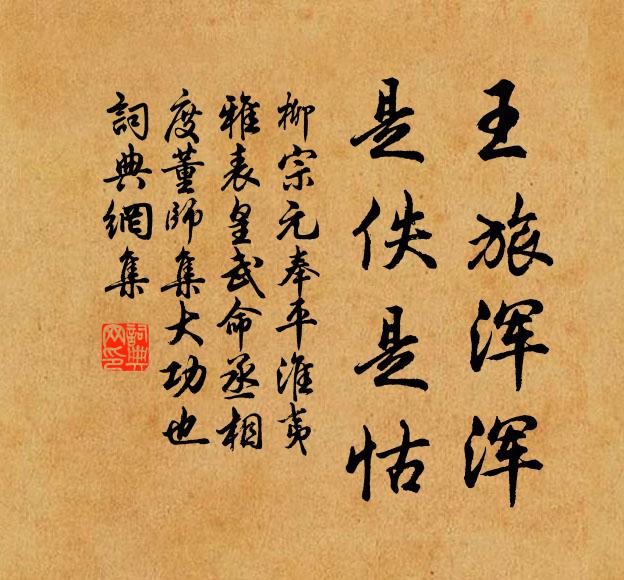 王旅浑浑
是佚是怙
柳宗元奉平淮夷
雅表皇武命丞相
度董師集大功也
詞典網集
詞典
网印